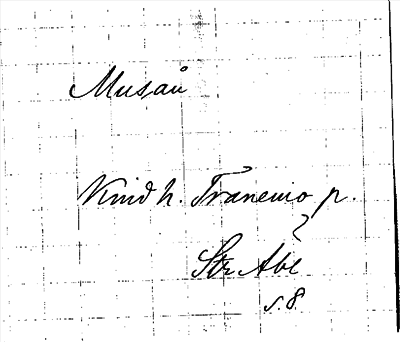 Musån
Kind h. Tranemo p.
Str Abl
s. 8